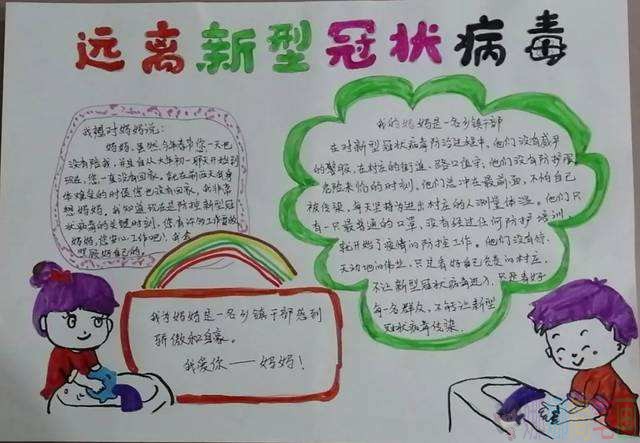 远离新型冠状病毒
我想对妈妈说:
妈妈,虽然今年春节您一天也
没有陪我,并且自从大年初一那天开始到
现在,您一直没有回家。就在前两天我身
体难受的时候您也没有回家。我非常
想妈妈。我知道现在是防控新型冠
状病毒的关键时刻,您有许多工作要做
妈妈,您安心工作吧!我会
照顾好自己的。
我为妈妈是一名乡镇干部感到
骄傲和自豪。
我爱你——妈妈!
我的妈妈是一名乡镇干部
在对新型冠状病毒防治过程中,他们没有威严
的警服,在村庄的街道、路口值守,他们没有防护服
危险来临的时刻,他们总冲在最前面,不怕自己
被传染,每天坚持为进出村庄的人测量体温。他们只
有一只最普通的口罩,没有经过任何防护培训
就开始了疫情的防控工作。他们没有惊
天动地的伟业,只是看好自己负责的村庄,
不让新型冠状病毒进入,只是看好
每一名群众,不能让新型
冠状病毒传染.